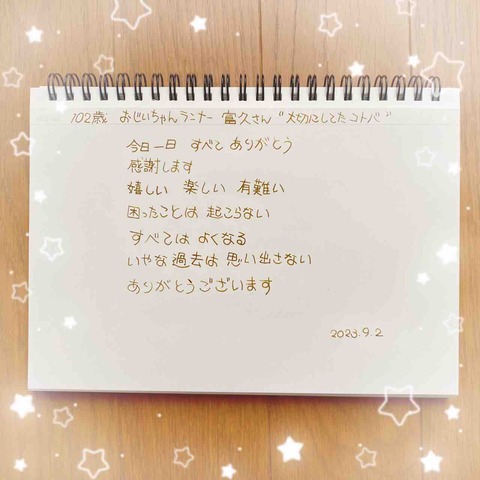 102歳 おじいちゃんランナー 富久さん "大切にしてたコトバ"
今日一日 すべて ありがとう
感謝します
嬉しい 楽しい 有難い
困ったことは 起こらない
すべては よくなる
いやな過去は 思い出さない
ありがとうございます
2023.9.2